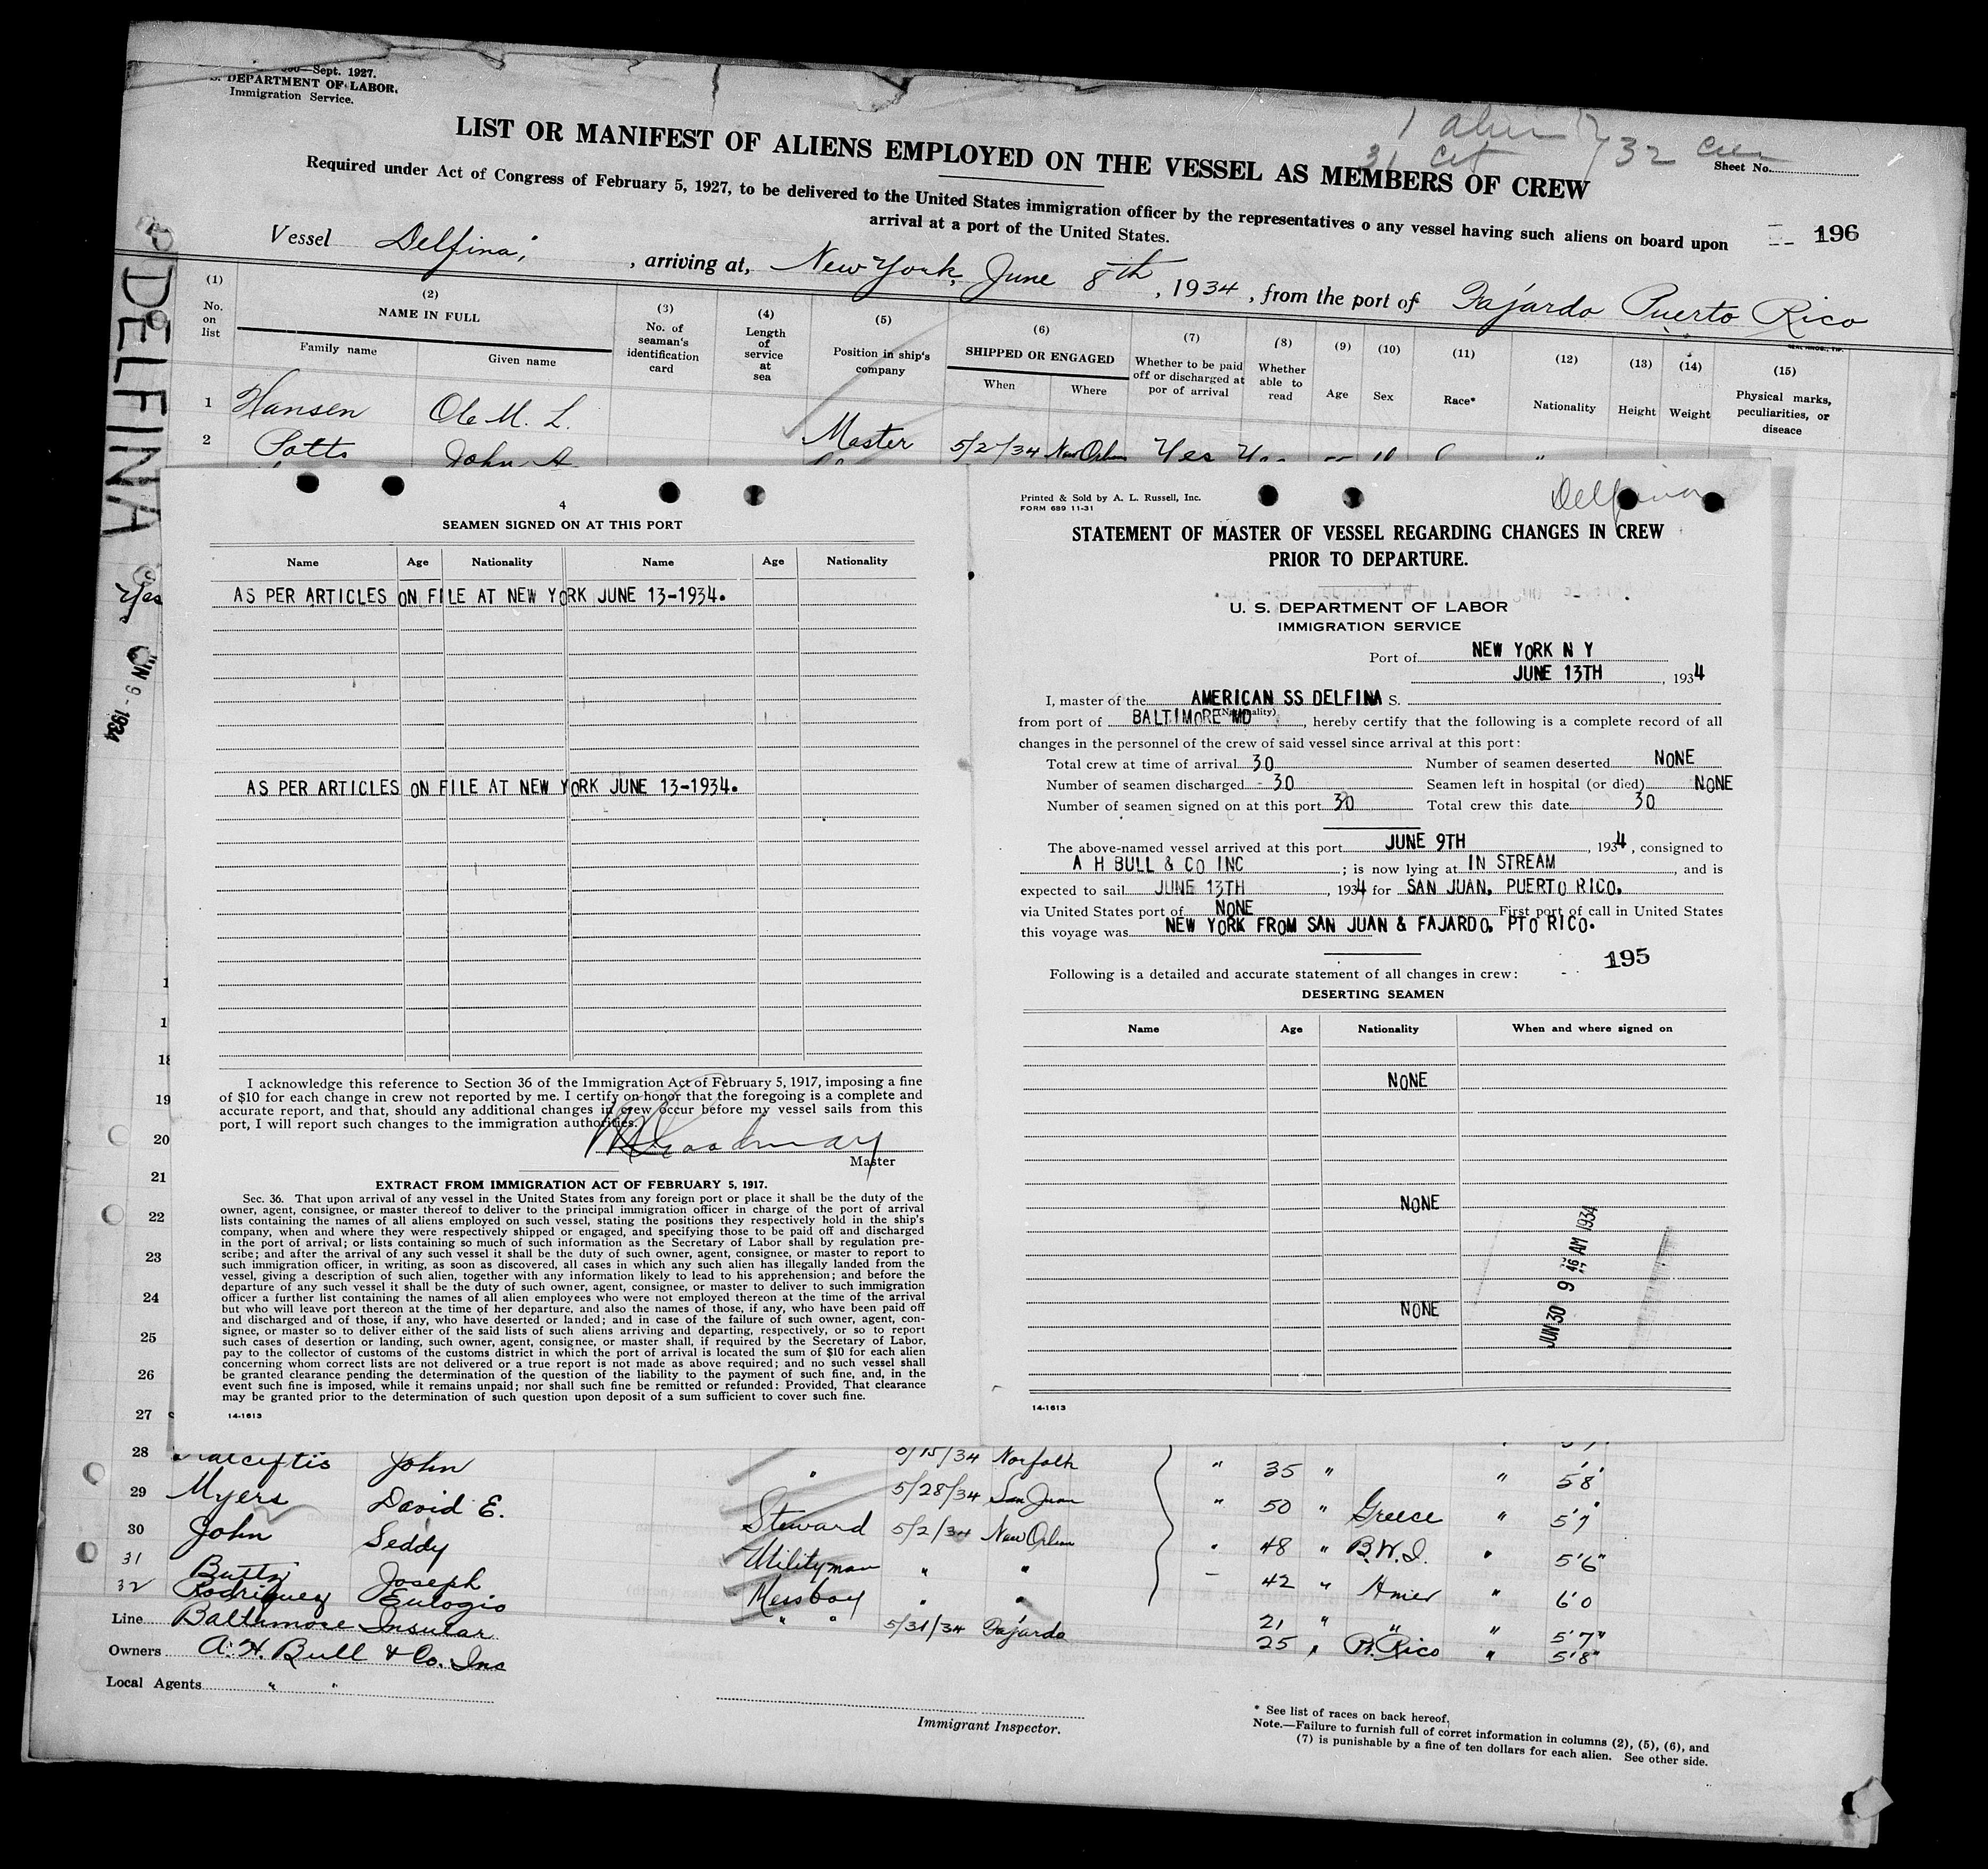 500—Sept. 1927.
S. DEPARTMENT OF LABOR,
Immigration Service.
1 alien
31 cit
32 crew
LIST OR MANIFEST OF ALIENS EMPLOYED ON THE VESSEL AS MEMBERS OF CREW
Sheet No.
Required under Act of Congress of February 5, 1927, to be delivered to the United States immigration officer by the representatives o any vessel having such aliens on board upon
arrival at a port of the United States.
196
Vessel Delfina, , arriving at, New York, June 8th , 1934 , from the port of Fajardo Puerto Rico
DELFINA
Yes
JUN 9 - 1934
(1) No. on list
(2) NAME IN FULL
Family name
Given name
(3) No. of seaman's identification card
(4) Length of service at sea
(5) Position in ship's company
(6) SHIPPED OR ENGAGED
When
Where
(7) Whether to be paid off or discharged at por of arrival
(8) Whether able to read
(9) Age
(10) Sex
(11) Race*
(12) Nationality
(13) Height
(14) Weight
(15) Physical marks, peculiarities, or diseace
1 Hansen Ole M. L. Master 5/2/34 New Orlens Yes Yes
2 Potts John A.
4
SEAMEN SIGNED ON AT THIS PORT
Name Age Nationality Name Age Nationality
AS PER ARTICLES ON FILE AT NEW YORK JUNE 13-1934.
AS PER ARTICLES ON FILE AT NEW YORK JUNE 13-1934.
I acknowledge this reference to Section 36 of the Immigration Act of February 5, 1917, imposing a fine
of $10 for each change in crew not reported by me. I certify on honor that the foregoing is a complete and
accurate report, and that, should any additional changes in crew occur before my vessel sails from this
port, I will report such changes to the immigration authorities.
Master
EXTRACT FROM IMMIGRATION ACT OF FEBRUARY 5, 1917.
Sec. 36. That upon arrival of any vessel in the United States from any foreign port or place it shall be the duty of the
owner, agent, consignee, or master thereof to deliver to the principal immigration officer in charge of the port of arrival
lists containing the names of all aliens employed on such vessel, stating the positions they respectively hold in the ship's
company, when and where they were respectively shipped or engaged, and specifying those to be paid off and discharged
in the port of arrival; or lists containing so much of such information as the Secretary of Labor shall by regulation pre-
scribe; and after the arrival of any such vessel it shall be the duty of such owner, agent, consignee, or master to report to
such immigration officer, in writing, as soon as discovered, all cases in which any such alien has illegally landed from the
vessel, giving a description of such alien, together with any information likely to lead to his apprehension; and before the
departure of any such vessel it shall be the duty of such owner, agent, consignee, or master to deliver to such immigration
officer a further list containing the names of all alien employees who were not employed thereon at the time of the arrival
but who will leave port thereon at the time of her departure, and also the names of those, if any, who have been paid off
and discharged and of those, if any, who have deserted or landed; and in case of the failure of such owner, agent, con-
signee, or master so to deliver either of the said lists of such aliens arriving and departing, respectively, or so to report
such cases of desertion or landing, such owner, agent, consignee, or master shall, if required by the Secretary of Labor,
pay to the collector of customs of the customs district in which the port of arrival is located the sum of $10 for each alien
concerning whom correct lists are not delivered or a true report is not made as above required; and no such vessel shall
be granted clearance pending the determination of the question of the liability to the payment of such fine, and, in the
event such fine is imposed, while it remains unpaid; nor shall such fine be remitted or refunded: Provided, That clearance
may be granted prior to the determination of such question upon deposit of a sum sufficient to cover such fine.
14-1613
Printed & Sold by A. L. Russell, Inc.
FORM 689 11-31
Delfina
STATEMENT OF MASTER OF VESSEL REGARDING CHANGES IN CREW
PRIOR TO DEPARTURE.
U. S. DEPARTMENT OF LABOR
IMMIGRATION SERVICE
Port of NEW YORK N Y
JUNE 13TH , 1934
I, master of the AMERICAN SS DELFINA S.
(Nationality)
from port of BALTIMORE MD , hereby certify that the following is a complete record of all
changes in the personnel of the crew of said vessel since arrival at this port:
Total crew at time of arrival 30 Number of seamen deserted NONE
Number of seamen discharged 30 Seamen left in hospital (or died) NONE
Number of seamen signed on at this port 30 Total crew this date 30
The above-named vessel arrived at this port JUNE 9TH , 1934 , consigned to
A H BULL & CO INC ; is now lying at IN STREAM , and is
expected to sail JUNE 13TH , 1934 for SAN JUAN, PUERTO RICO.
via United States port of NONE First port of call in United States
this voyage was NEW YORK FROM SAN JUAN & FAJARDO, PTO RICO.
195
Following is a detailed and accurate statement of all changes in crew:
DESERTING SEAMEN
Name Age Nationality When and where signed on
NONE
NONE
NONE
JUN 30 9 46 AM 1934
14-1613
18
19
20
21
22
23
24
25
26
27
28 John " 5/15/34 Norfolk " 35 " " 5'8"
29 Myers David E. 5/28/34 San Juan " 50 " Greece " 5'7"
30 John Seddy Steward 5/2/34 New Orlens " 48 " B.W.I. " 5'6"
31 Butts Joseph Utilityman " " 42 " Amer " 6'0
32 Rodriguez Eulogio Messboy " " 21 " " " 5'7"
" " 5/31/34 Fajardo 25 " P. Rico " 5'8"
Line Baltimore Insular
Owners A. H. Bull & Co. Inc
Local Agents " "
Immigrant Inspector.
* See list of races on back hereof.
Note.—Failure to furnish full of corret information in columns (2), (5), (6), and
(7) is punishable by a fine of ten dollars for each alien. See other side.